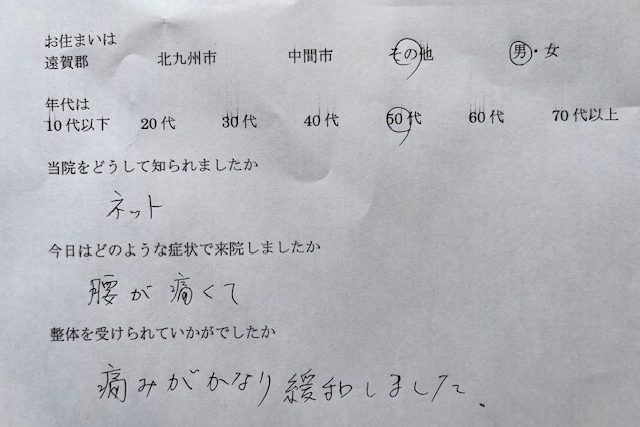 お住まいは
遠賀郡 北九州市 中間市 その他 男・女
年代は
10代以下 20代 30代 40代 50代 60代 70代以上
当院をどうして知られましたか
ネット
今日はどのような症状で来院しましたか
腰が痛くて
整体を受けられていかがでしたか
痛みがかなり緩和しました。